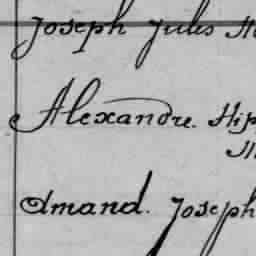 Joseph Jules
Alexandre. Hip
Amand. Joseph